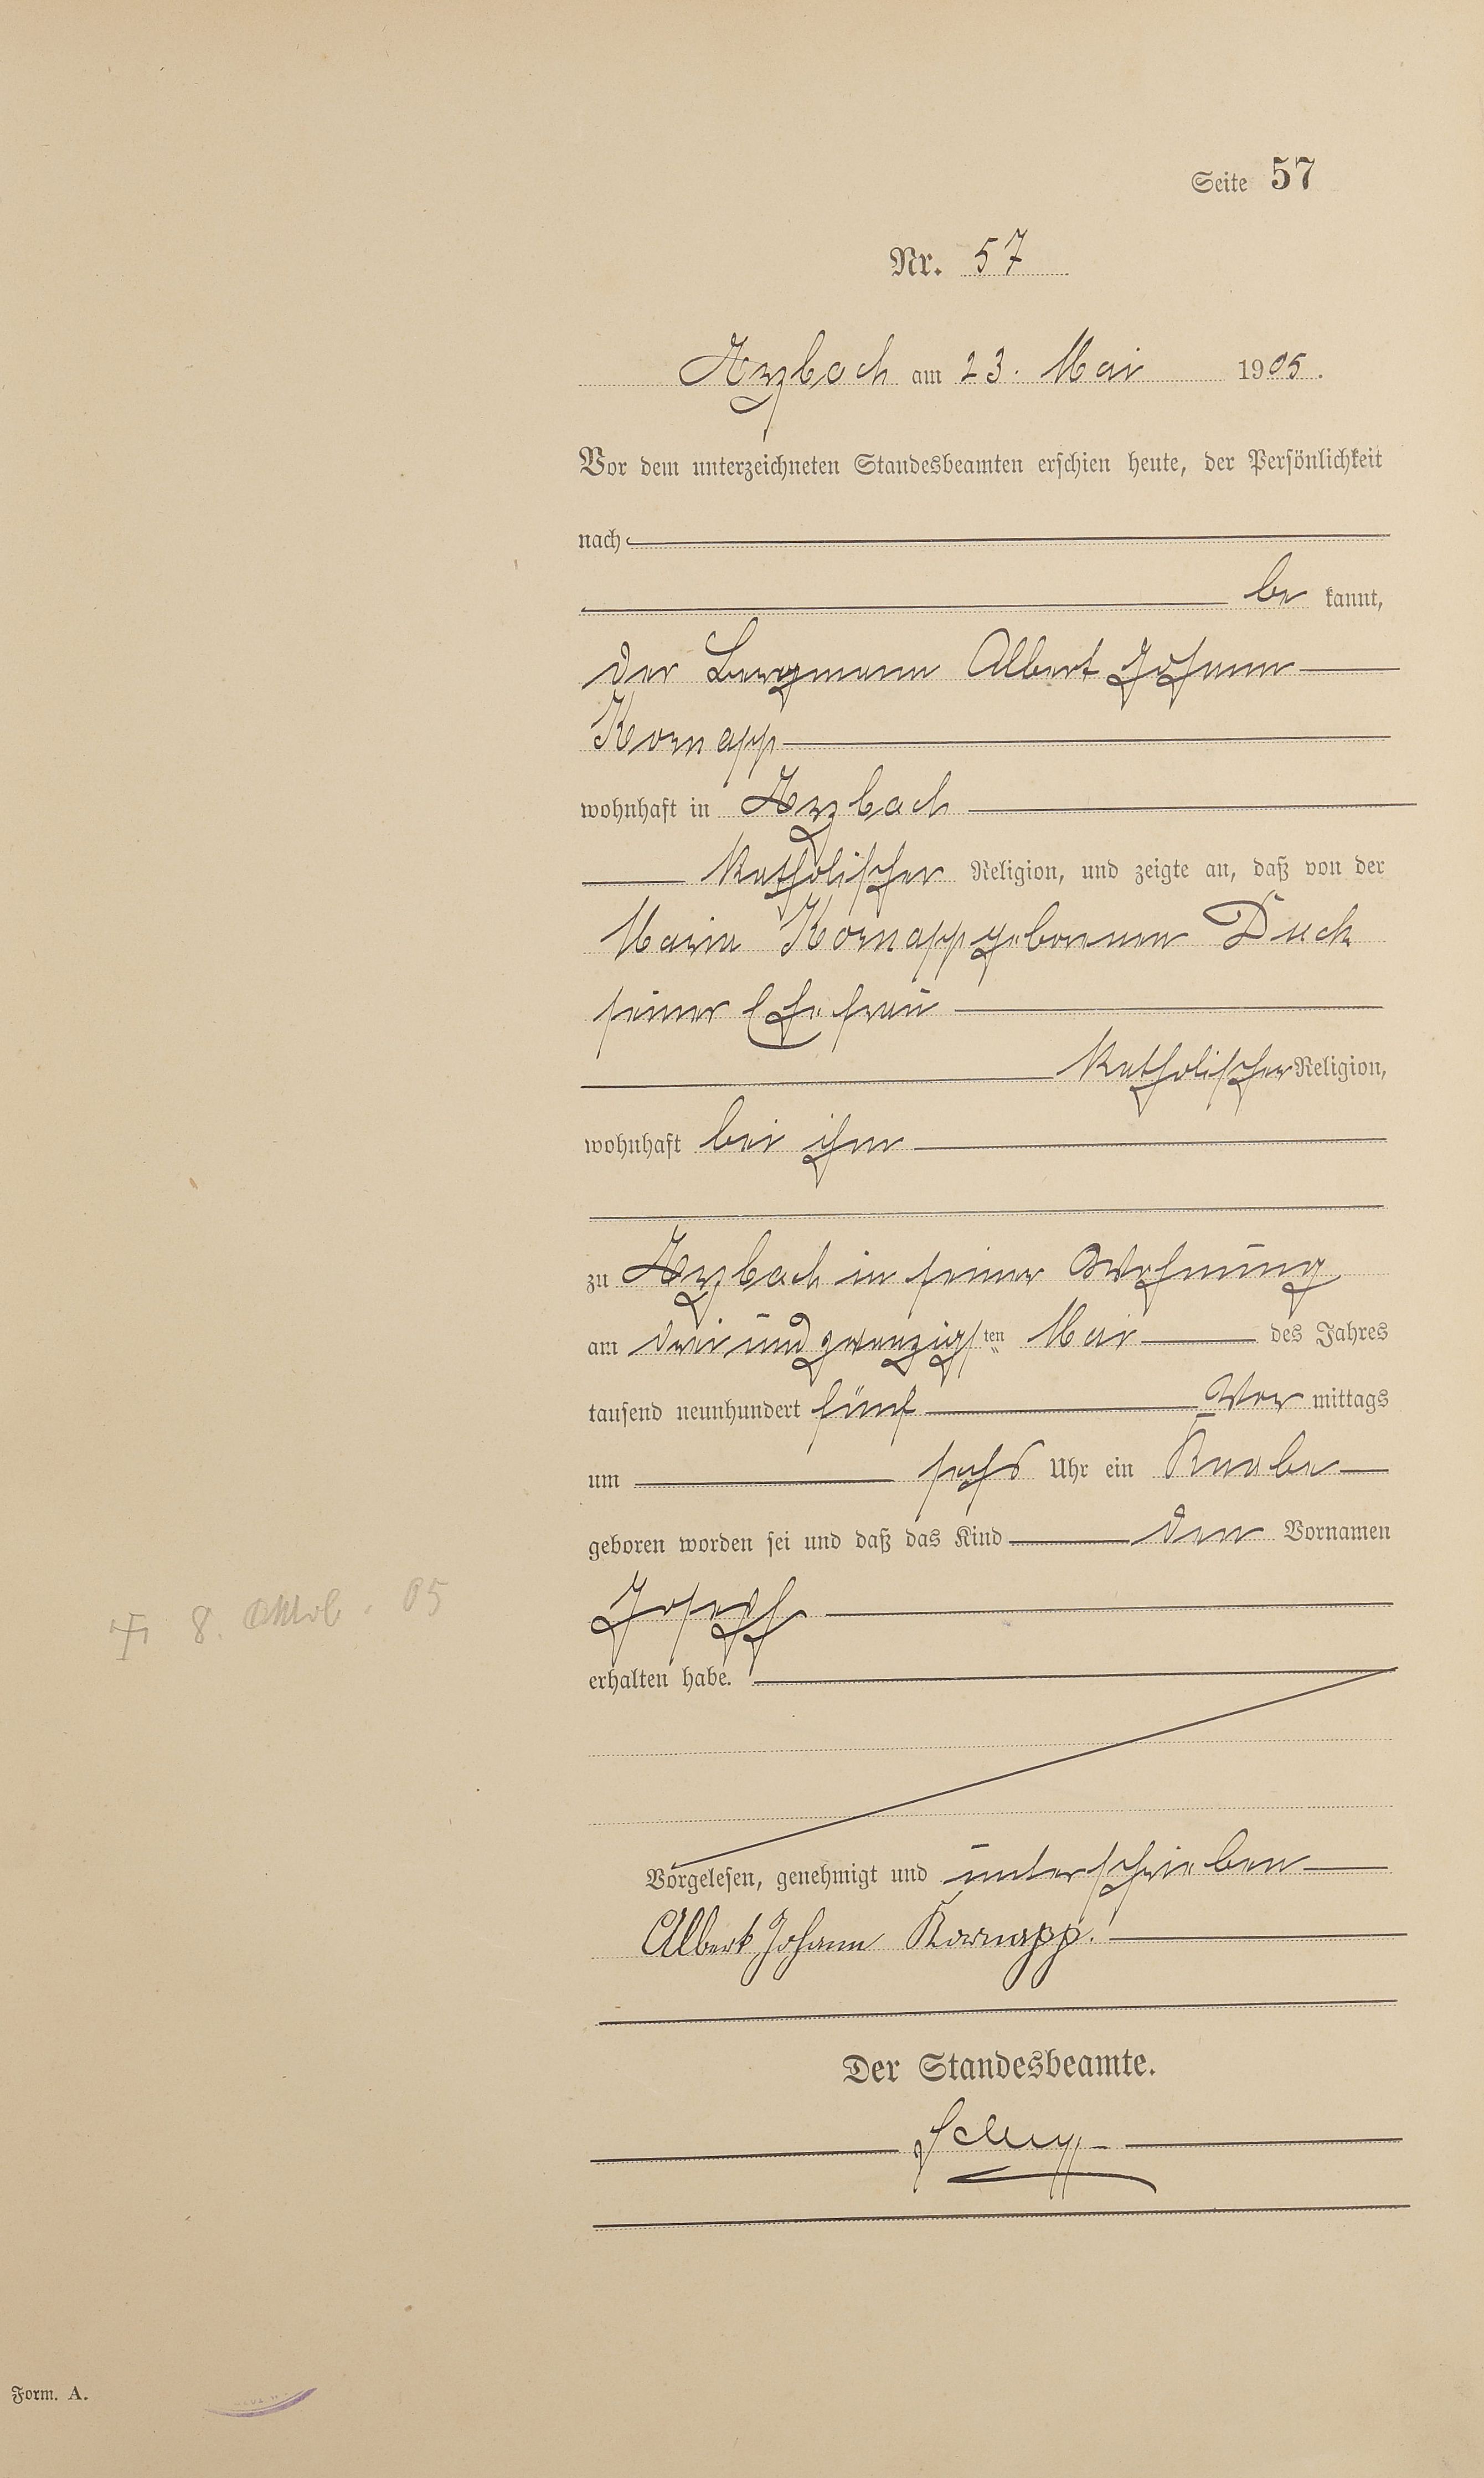 Seite 57
Nr. 57
Arzbach am 23. Mai 1905.
Vor dem unterzeichneten Standesbeamten erschien heute, der Persönlichkeit
nach
be kannt,
der Bergmann Albert Johann
Kornapp
wohnhaft in Arzbach
katholischer Religion, und zeigte an, daß von der
Maria Kornapp geborenen Duck
seiner Ehefrau
katholischer Religion,
wohnhaft bei ihm
zu Arzbach in seiner Wohnung
am drei und zwanzigsten Mai des Jahres
tausend neunhundert fünf Vor mittags
um sechs Uhr ein Knabe
geboren worden sei und daß das Kind den Vornamen
Joseph
† 8. Oktob. 05
erhalten habe.
Vorgelesen, genehmigt und unterschrieben
Albert Johann Kornapp.
Der Standesbeamte.
Form. A.